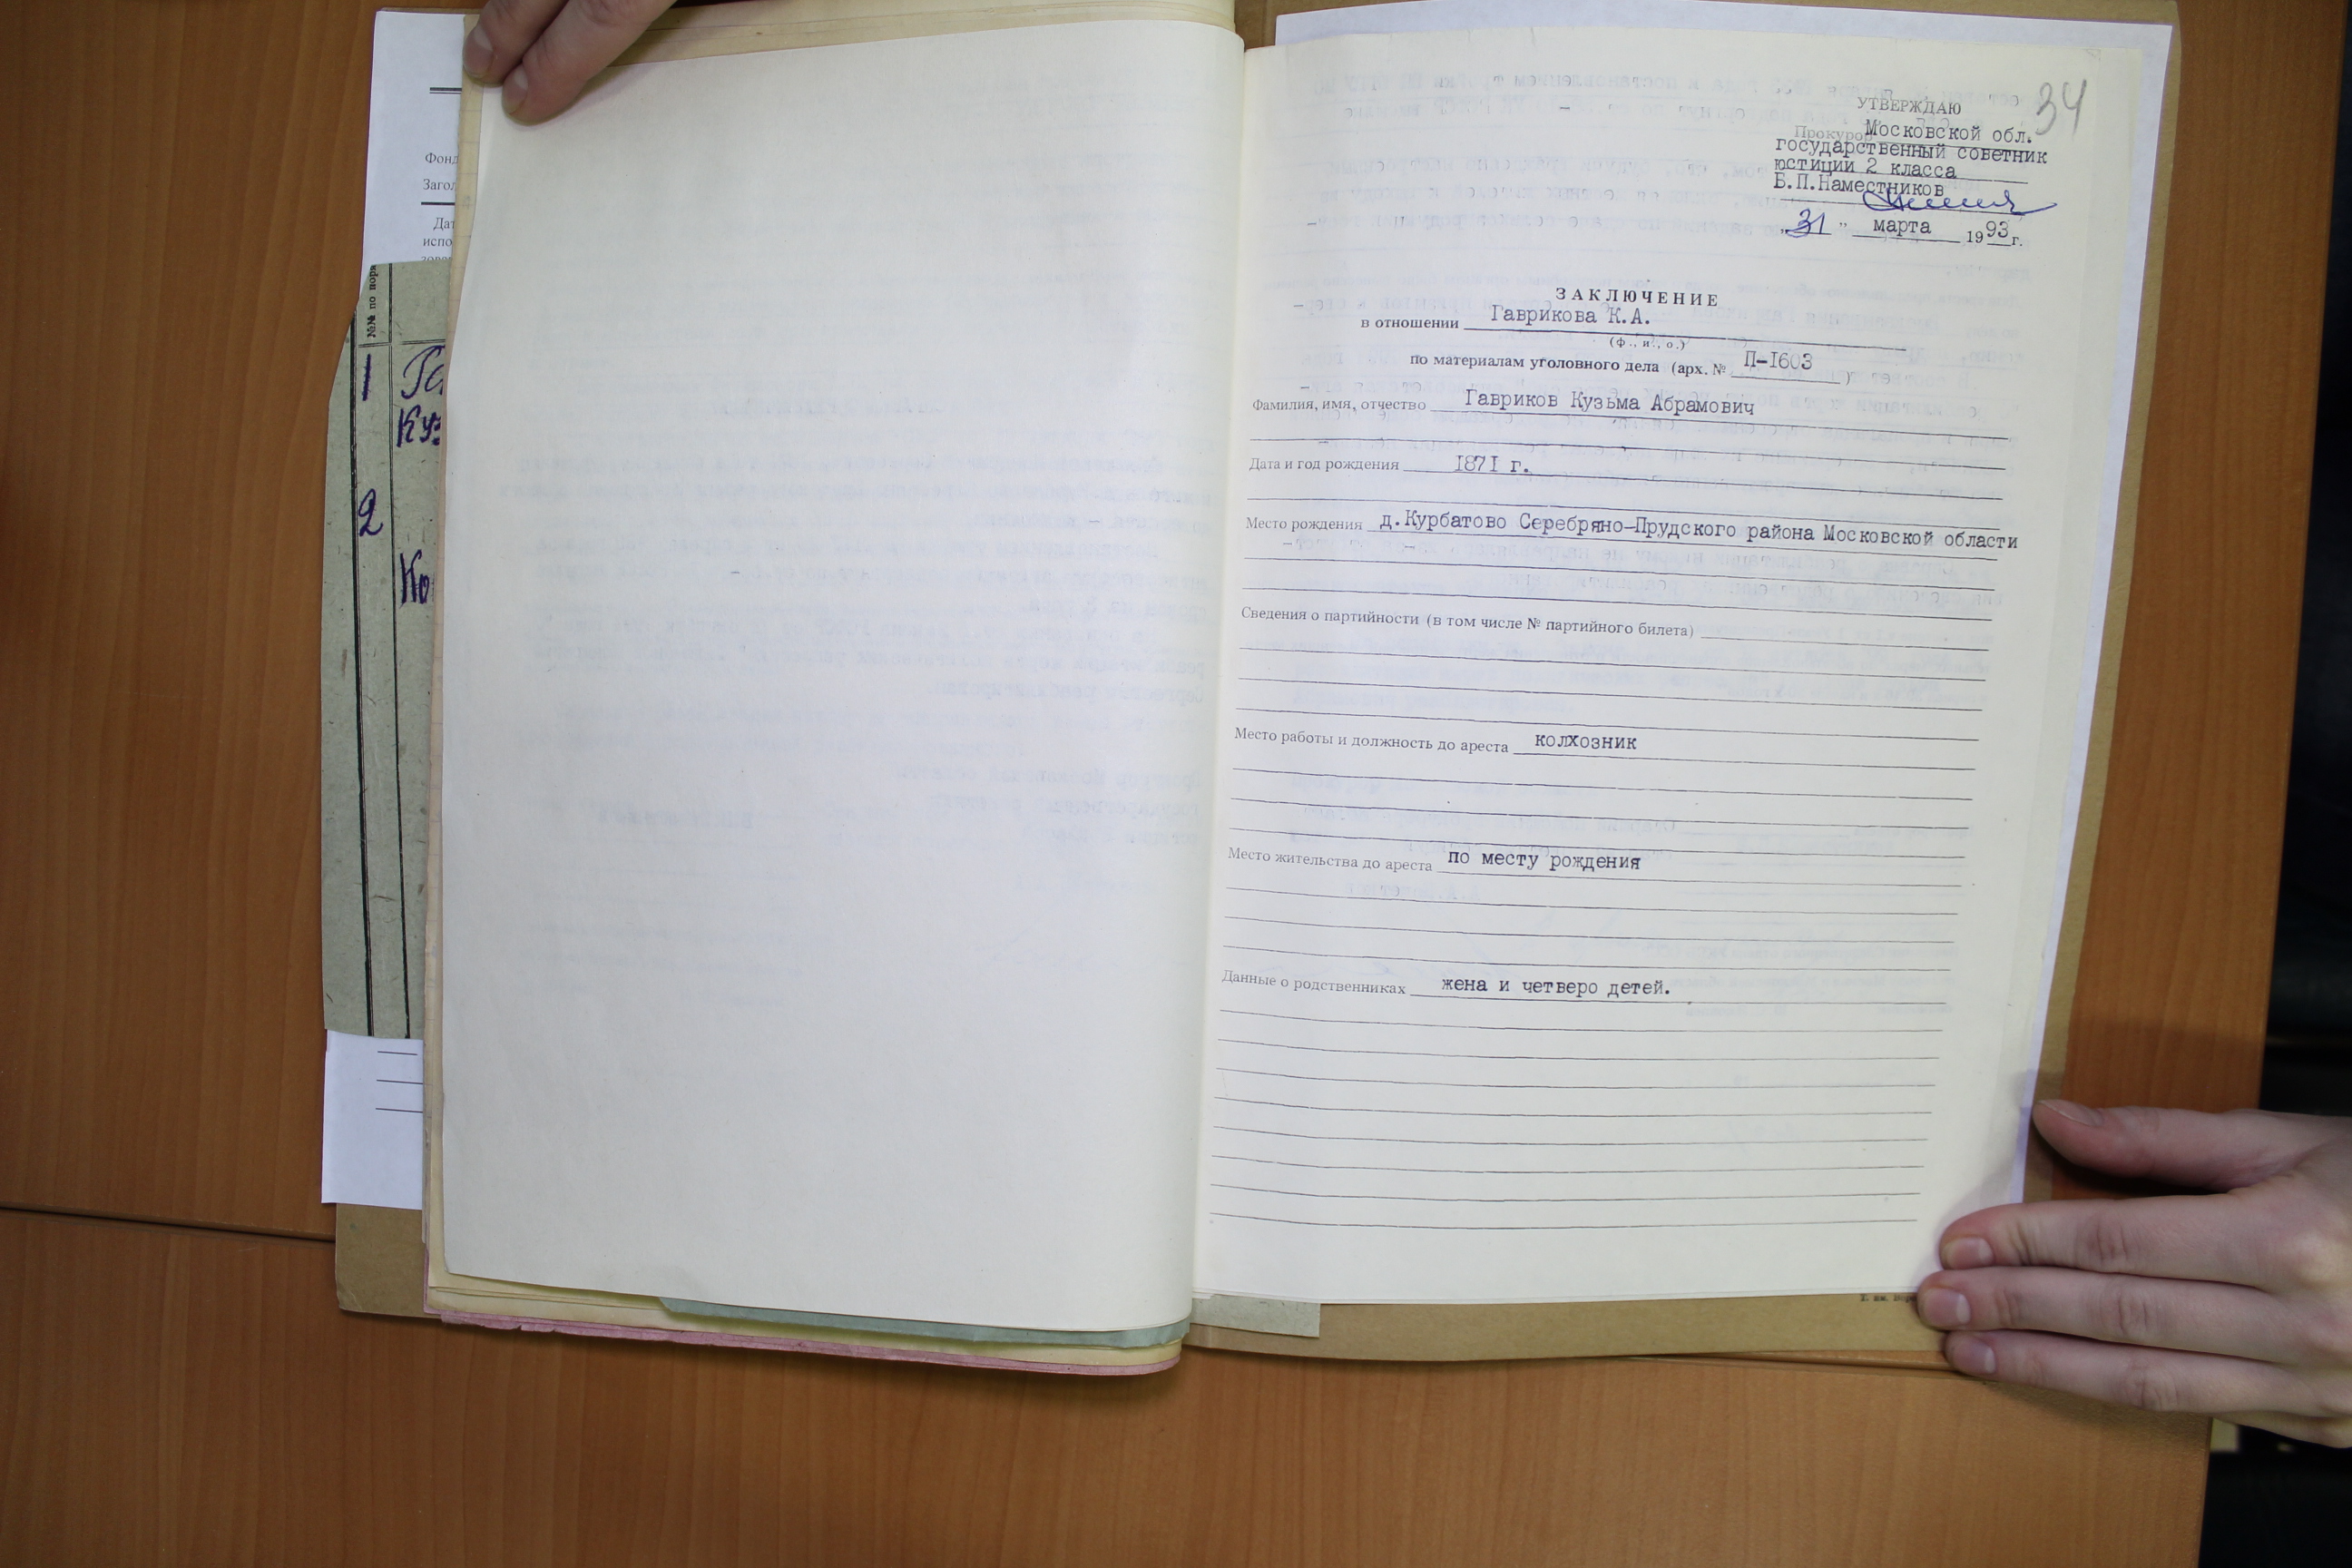 Фонд
Загол
Дат
испо
№№ по поряд
1
Га
Куз
2
Ко
34
УТВЕРЖДАЮ
Прокурор Московской обл.
государственный советник
юстиции 2 класса
Б.П.Наместников
„31" марта 1993 г.
ЗАКЛЮЧЕНИЕ
в отношении Гаврикова К.А.
(ф., и., о.)
по материалам уголовного дела (арх. № П-1603 )
Фамилия, имя, отчество Гавриков Кузьма Абрамович
Дата и год рождения 1871 г.
Место рождения д.Курбатово Серебряно-Прудского района Московской области
Сведения о партийности (в том числе № партийного билета)
Место работы и должность до ареста колхозник
Место жительства до ареста по месту рождения
Данные о родственниках жена и четверо детей.